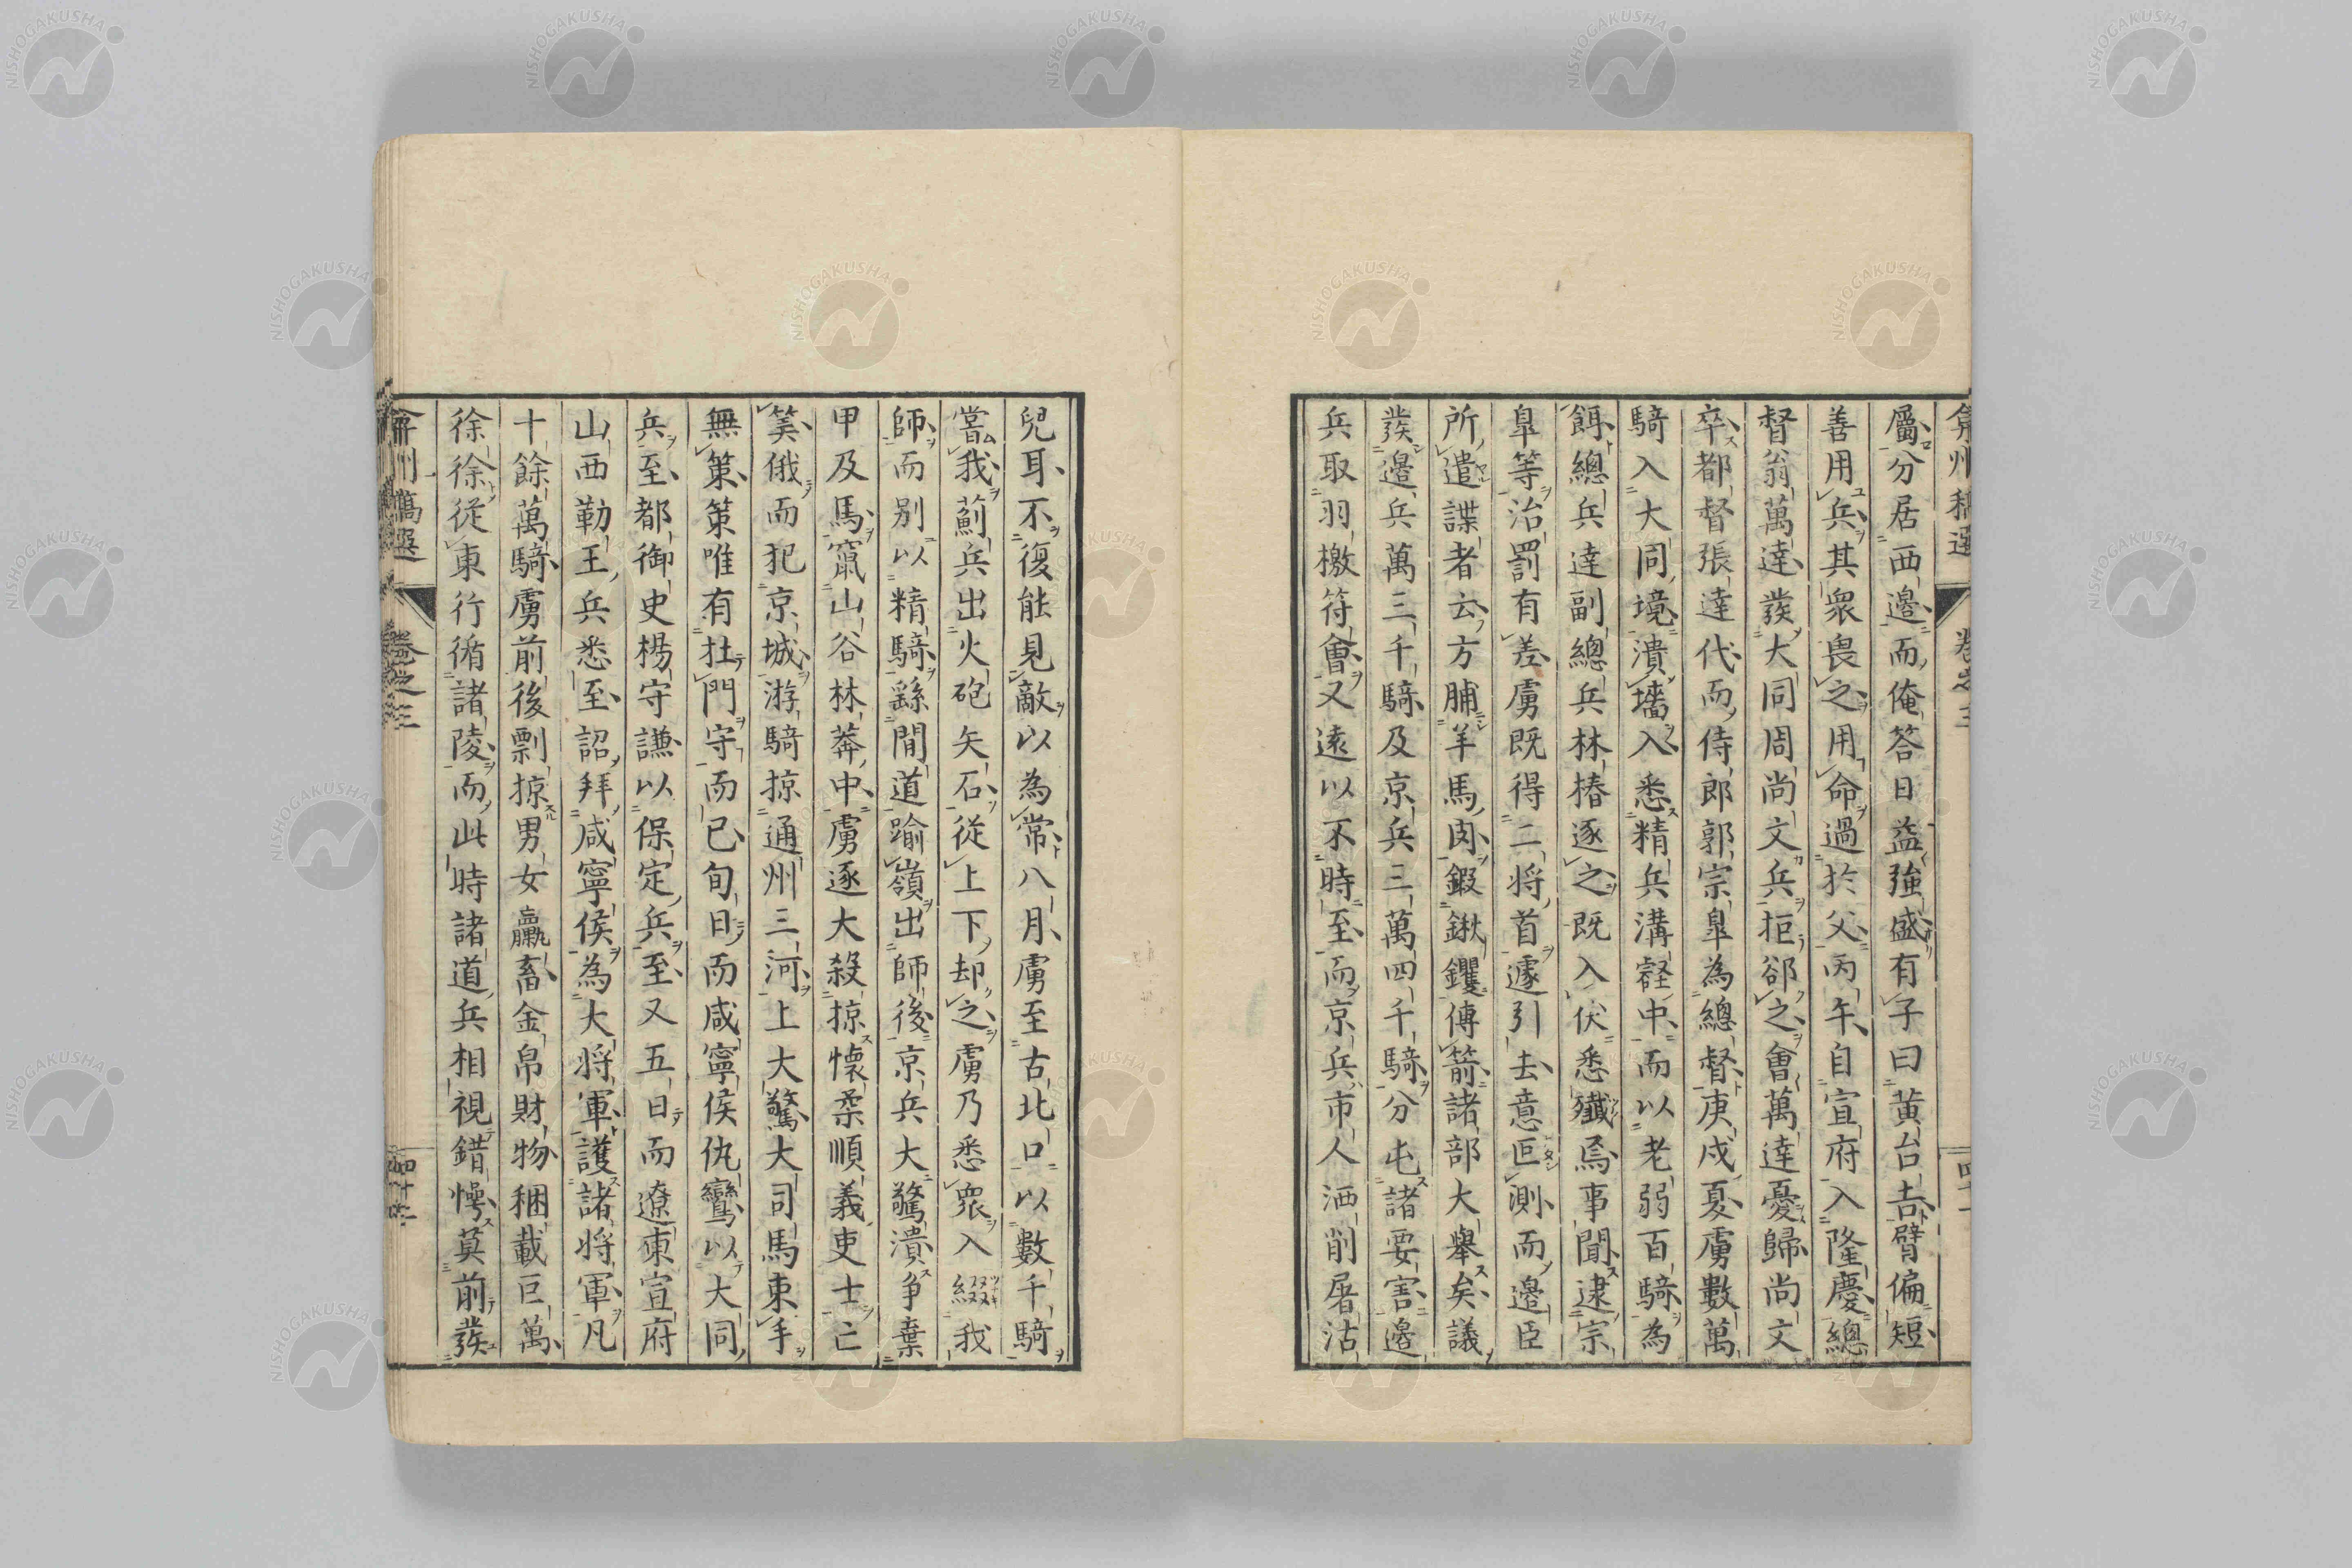 弇州稿選 卷之三 四十一
屬分居西邊而俺答日益強盛有子曰黃台吉臂偏短
善用兵其衆畏之用命過於父丙午自宣府入隆慶總
督翁萬達發大同周尚文兵拒郤之會萬達憂歸尚文
卒都督張達代而侍郎郭宗皐為總督庚戌夏虜數萬
騎入大同境潰墻入悉精兵溝壑中而以老弱百騎為
餌總兵達副總兵林椿逐之既入伏悉殲焉事聞逮宗
皐等治罰有差虜既得二將首遽引去意叵測而邊臣
所遣諜者云方脯羊馬肉鍜鍬钁傳箭諸部大舉矣議
發邊兵萬三千騎及京兵三萬四千騎分屯諸要害邊
兵取羽檄符會又遠以不時至而京兵市人洒削屠沽
兒耳不復能見敵以為常八月虜至古北口以數千騎
嘗我薊兵出火砲矢石從上下却之虜乃悉衆入綴我
師而別以精騎繇間道踰嶺出師後京兵大驚潰爭棄
甲及馬竄山谷林莽中虜逐大殺掠懷柔順義吏士亡
筭俄而犯京城游騎掠通州三河上大驚大司馬束手
無策策唯有杜門守而已旬日而咸寧侯仇鸞以大同
兵至都御史楊守謙以保定兵至又五日而遼東宣府
山西勒王兵悉至詔拜咸寧侯為大將軍護諸將軍凡
十餘萬騎虜前後剽掠男女羸畜金帛財物稛載巨萬
徐徐從東行循諸陵而此時諸道兵相視錯愕莫前發
弇州稿選 卷之三 四十二
NISHOGAKUSHA